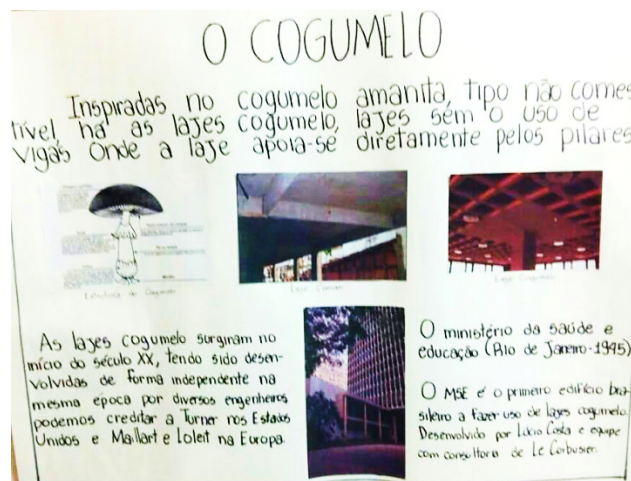 O COGUMELO
Inspiradas no cogumelo amanita, tipo não comes
tível, há as lajes cogumelo, lajes sem o uso de
vigas onde a laje apoia-se diretamente pelos pilares
Estrutura do Cogumelo
Laje Cogumelo
As lajes cogumelo surgiram no
início do século XX, tendo sido desen-
volvidas de forma independente na
mesma época por diversos engenheiros
podemos creditar a Turner nos Estados
Unidos e Maillart e Loleit na Europa.
O ministério da saúde e
educação (Rio de Janeiro-1945)
O MSE é o primeiro edifício bra-
sileiro a fazer uso de lajes cogumelo.
Desenvolvido por Lúcio Costa e equipe
com consultoria de Le Corbusier.